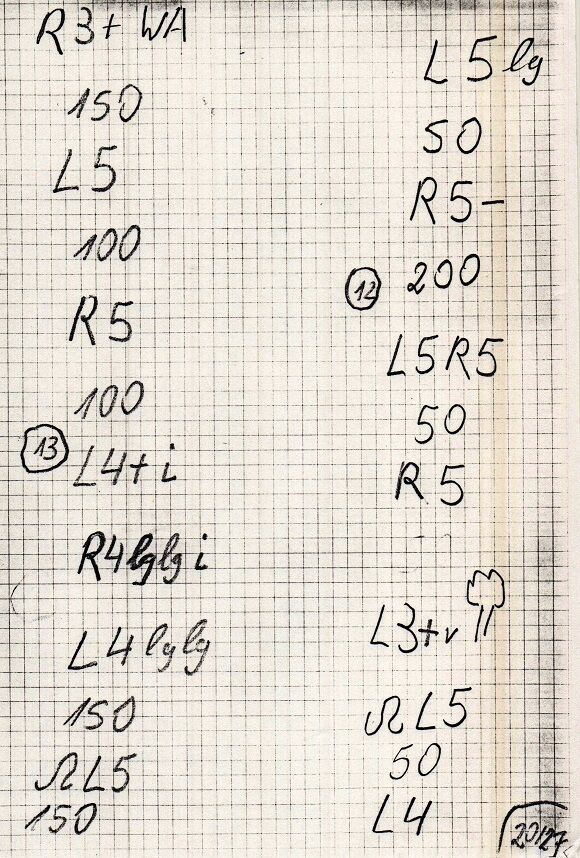 R3+ WA
150
L5
100
R5
100
13 L4+ i
R4 lg lg i
L4 lg lg
150
Ω L5
150
L5 lg
50
R5-
12 200
L5 R5
50
R5
L3+v
Ω L5
50
L4
20/27